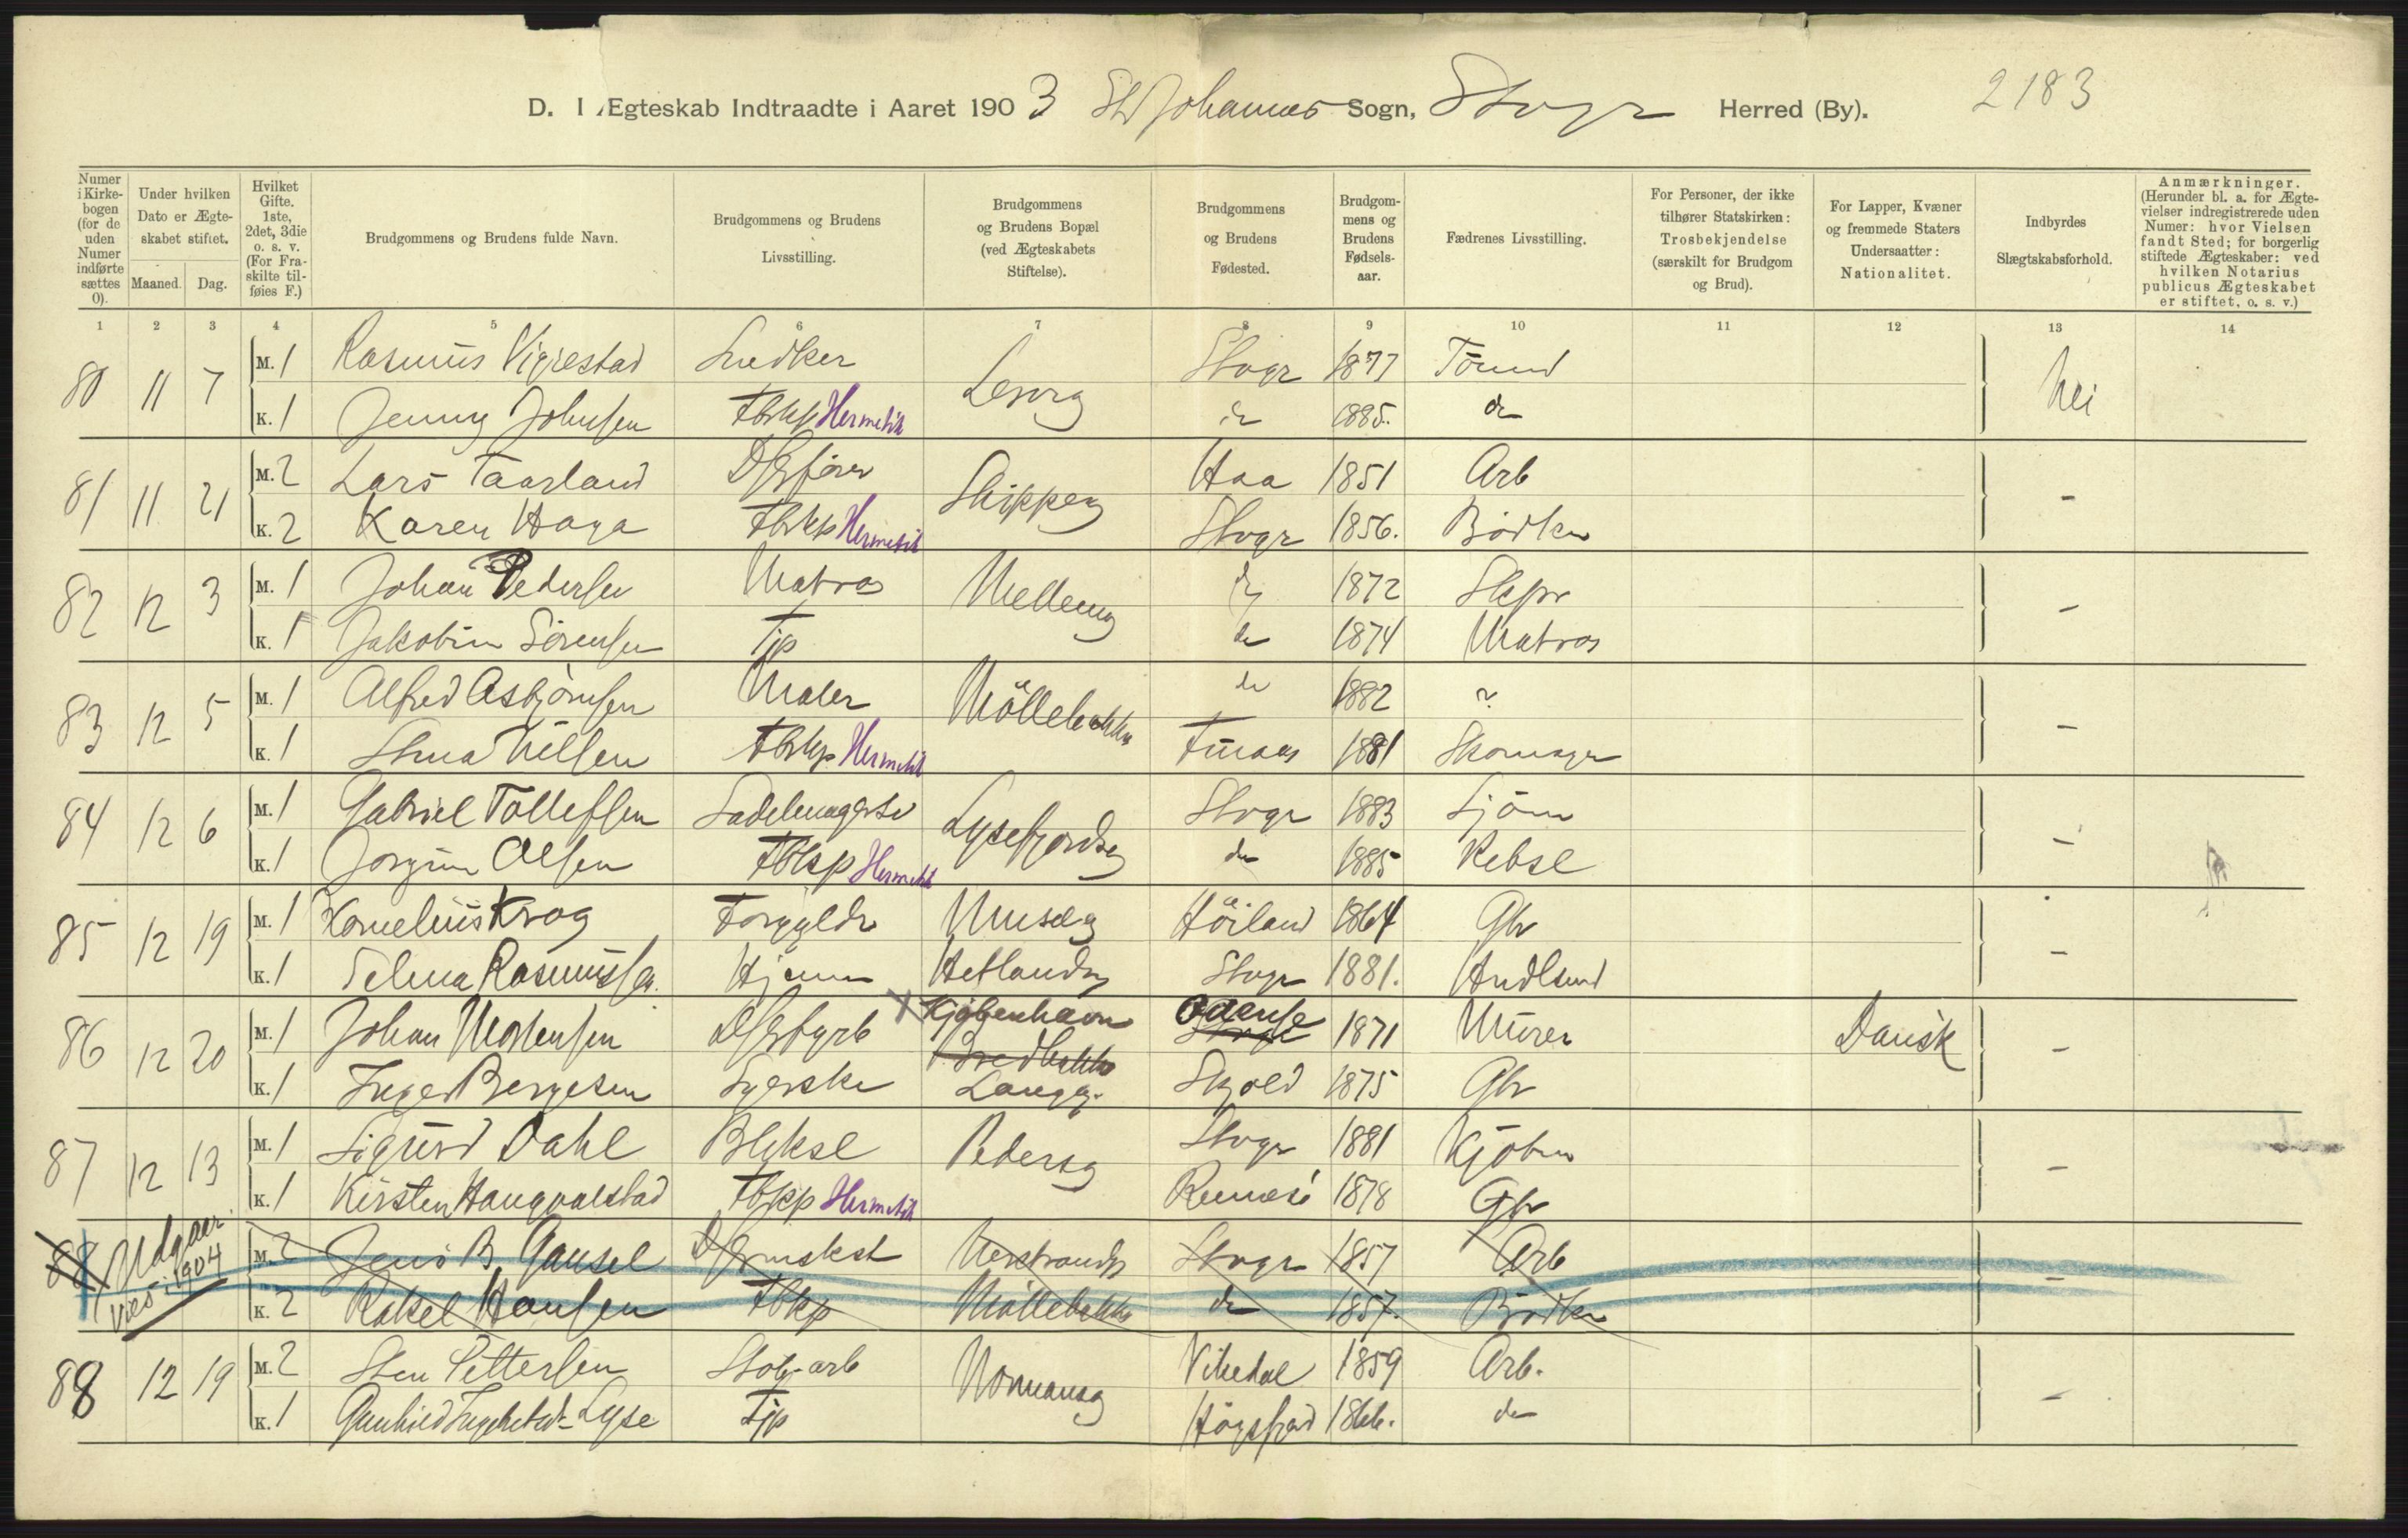 D. I Ægteskab Indtraadte i Aaret 1903 St Johannes Sogn, Stvgr Herred (By). 2183
Numer i Kirkebogen (for de uden Numer indførte sættes 0).
Under hvilken Dato er Ægteskabet stiftet.
Maaned. Dag.
Hvilket Gifte. 1ste, 2det, 3die o. s. v. (For Fraskilte tilføies F.)
Brudgommens og Brudens fulde Navn.
Brudgommens og Brudens Livsstilling.
Brudgommens og Brudens Bopæl (ved Ægteskabets Stiftelse).
Brudgommens og Brudens Fødested.
Brudgommens og Brudens Fødselsaar.
Fædrenes Livsstilling.
For Personer, der ikke tilhører Statskirken: Trosbekjendelse (særskilt for Brudgom og Brud).
For Lapper, Kvæner og fremmede Staters Undersaatter: Nationalitet.
Indbyrdes Slægtskabsforhold.
Anmærkninger. (Herunder bl. a. for Ægtevielser indregistrerede uden Numer: hvor Vielsen fandt Sted; for borgerlig stiftede Ægteskaber: ved hvilken Notarius publicus Ægteskabet er stiftet, o. s. v.)
1 2 3 4 5 6 7 8 9 10 11 12 13 14
80 11 7 M. 1 Rasmus Vigrestad Snedker Stvgr 1877 Tömd Nei
K. 1 Jenny Johnsen Fbrkp Hermetik do 1885. do
81 11 21 M. 2 Lars Taarland Skipperg Haa 1851 Arb -
K. 2 Karen Haga Fbrkp Hermetik Stvgr 1856. Bödker
82 12 3 M. 1 Johan Pedersen Matros do 1872 Skpr -
K. 1 Jakobine Sörensen Tjp do 1874 Matros
83 12 5 M. 1 Alfred Asbjörnsen Maler Möllebakken do 1882 ? -
K. 1 Stina Nilsen Fbrkp Hermetik 1881 Skomager
84 12 6 M. 1 Gabriel Tollefsen Sadelmagersv Lysefjordsg Stvgr 1883 Sjöm -
K. 1 Jorgine Olsen Fbkp Hermetik do 1885 Rebsl
85 12 19 M. 1 Kornelius Krog Forgylder Museg Höiland 1864 Gbr -
K. 1 Selma Rasmussen. Hjemme Hetlandsg Stvgr 1881. Hndlsmd
86 12 20 M. 1 Johan Mortensen X Kjöbenhavn Odense 1871 Murer Dansk -
Bredbakken
K. 1 Inger Bergesen Syerske Langg. Skjold 1875 Gbr
87 12 13 M. 1 Sigurd Dahl Blyksl Pedersg Stvgr 1881 Kjöbm -
K. 1 Kirsten Haugvalstad Fbkp Hermetik Rennesö 1878 Gbr
88 Udgaar. Vies i 1904 M. 2 Jens B Gausel Stvgr 1857 Arb -
K. 2 Rakel Hansen Fbkp Möllebakken do 1857. Bödker
88 12 19 M. 2 Sten Pettersen Stob-arb Normansg Vikedal 1859 Arb. -
K. 1 Gunhild Ingebretsdr Lyse Tjp Högsfjord 1866. do